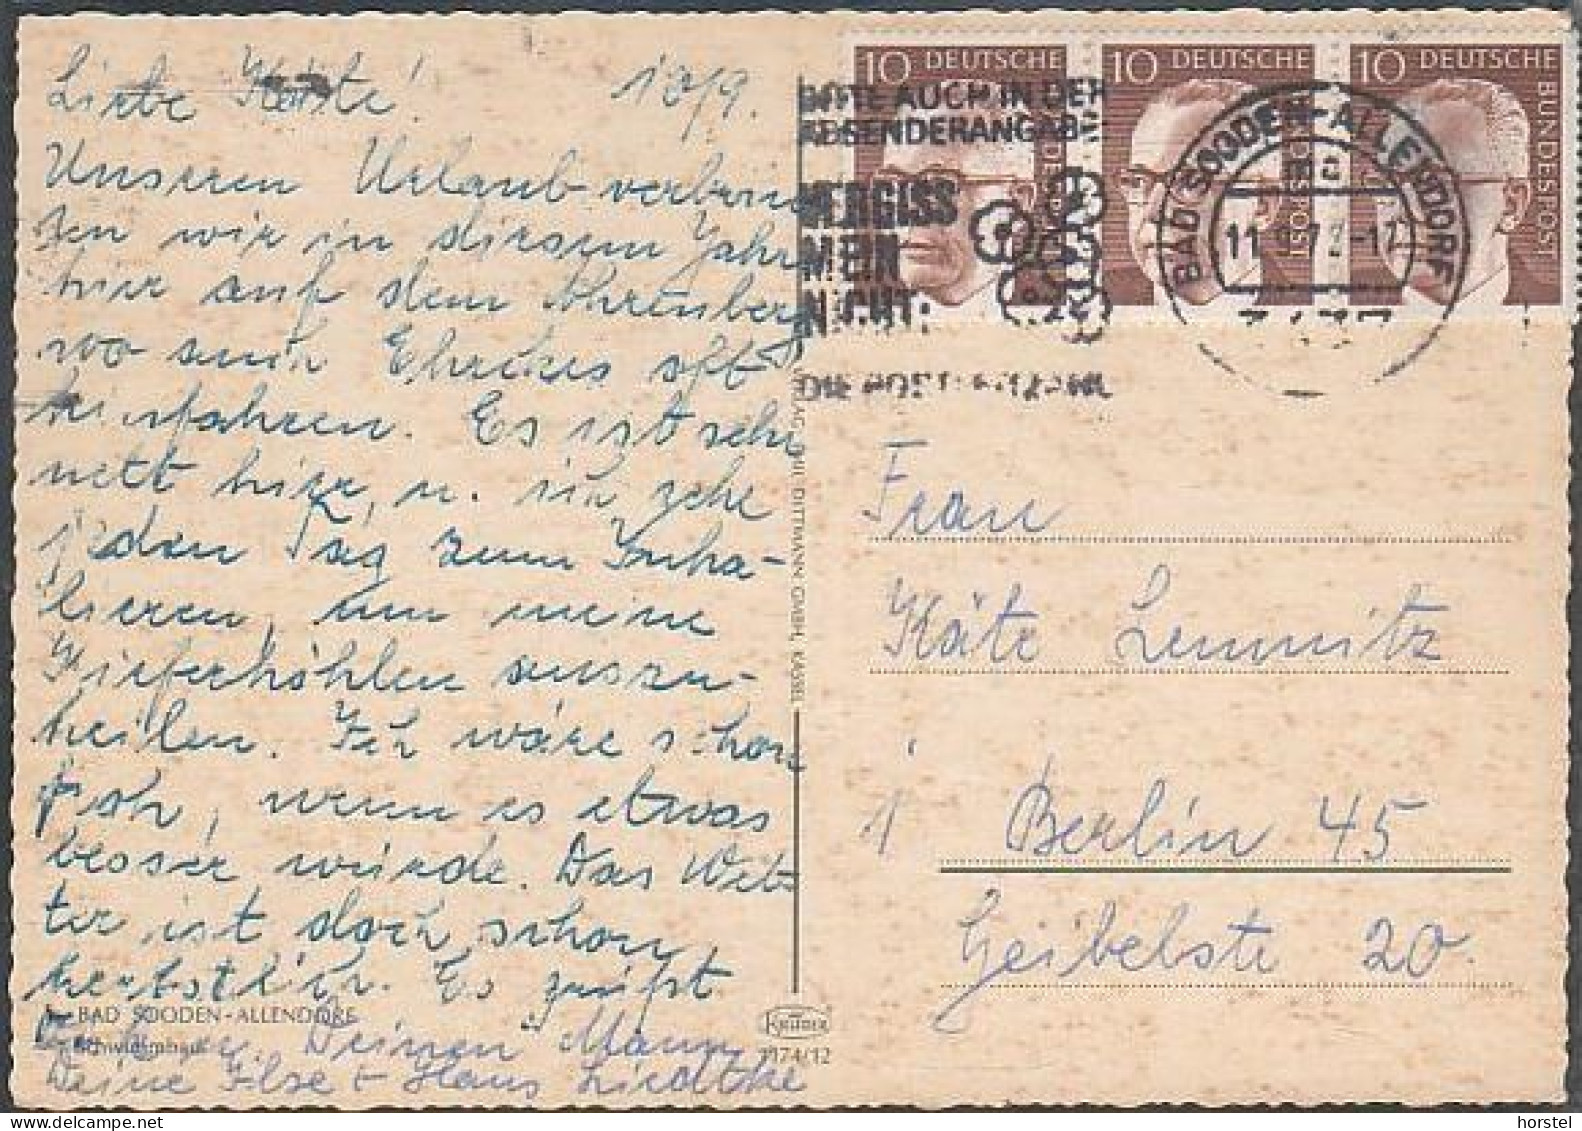 Liebe Käte! 10/9.
Unseren Urlaub verbrin
gen wir in diesem Jahr
hier auf dem Ahrenberg
wo auch Ehrckes oft
hinfahren. Es ist sehr
nett hier, u. ich gehe
jeden Tag zum Inha-
lieren, um meine
Kieferhöhlen auszu-
heilen. Ich wäre schon
froh, wenn es etwas
besser würde. Das Wet
ter ist doch schon
herbstlich. Es grüßt
Dich u. Deinen Mann
Deine Ilse + Hans Liedtke
BAD SOODEN-ALLENDORF
Schwimmbad
VERLAG PHIL. DITTMANN GMBH, KASSEL
KRÜGER
1174/12
10 DEUTSCHE
10 DEUTSCHE
10 DEUTSCHE BUNDESPOST
BITTE AUCH IN DER
ABSENDERANGABE
VERGISS
MEIN
NICHT:
DIE POSTLEITZAHL
BAD SOODEN-ALLENDORF
Frau
Käte Lemnitz
1 Berlin 45
Geibelstr 20.
horstel